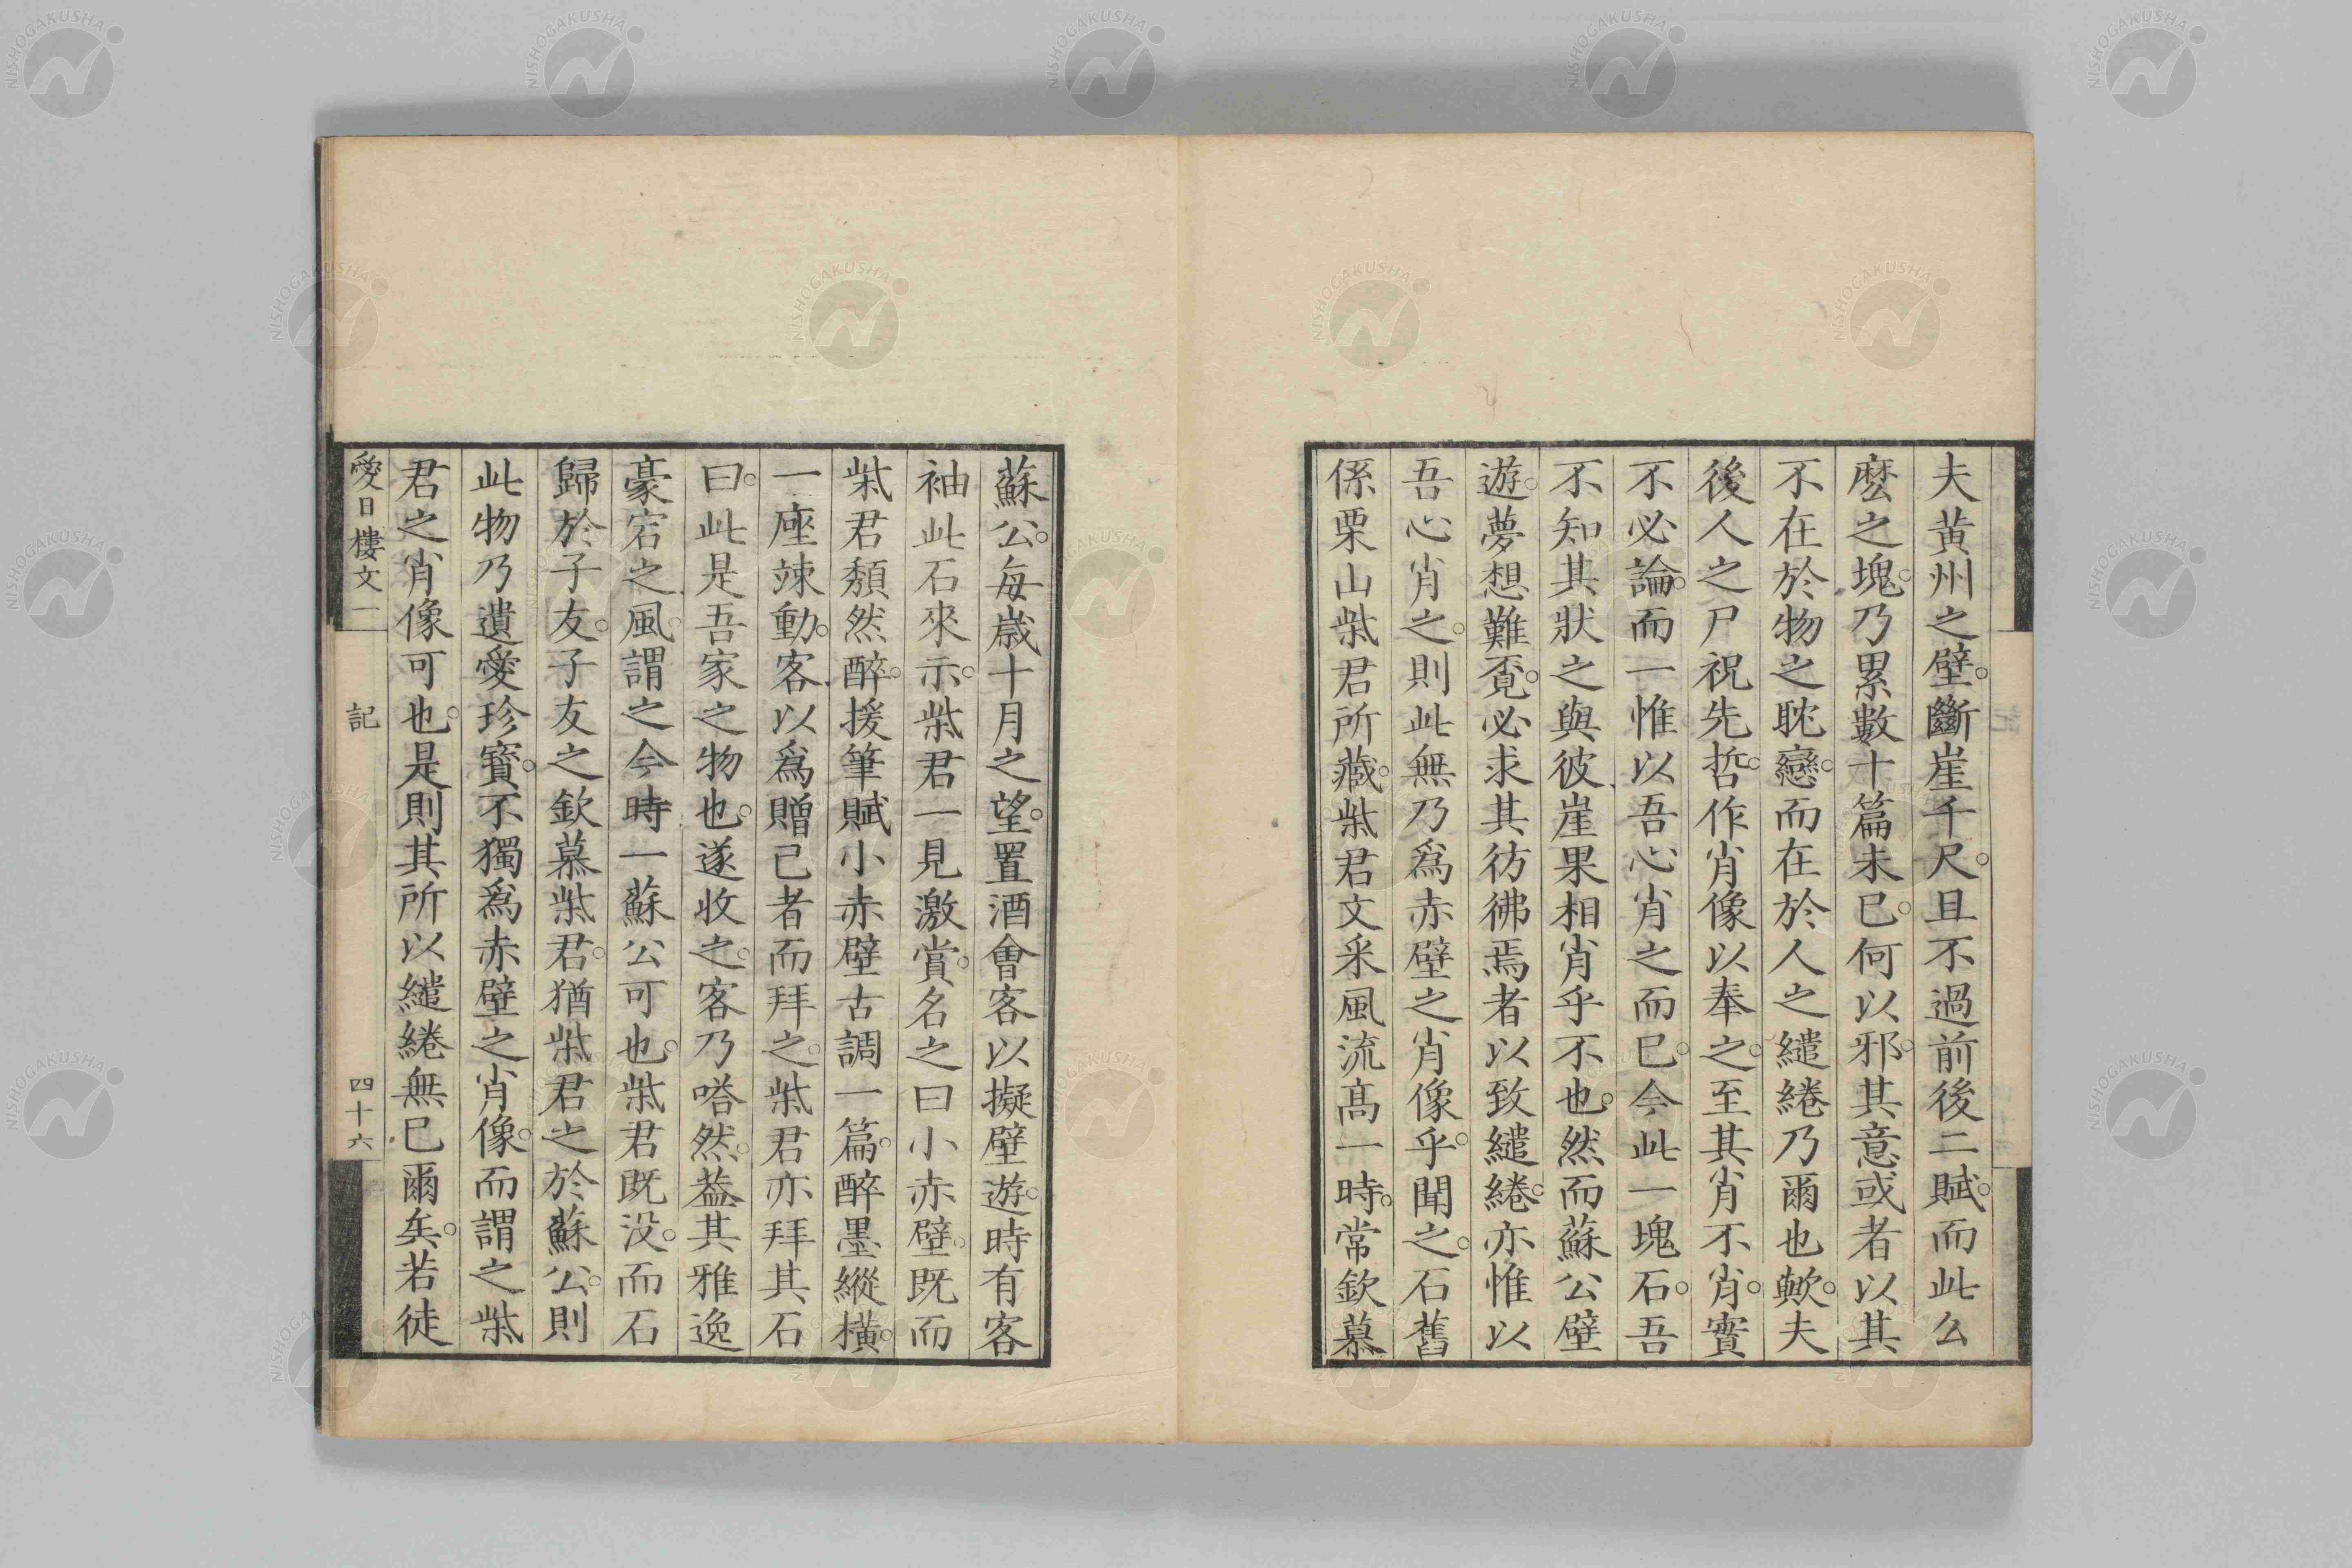 夫黄州之壁。斷崖千尺。且不過前後二賦。而此么
麽之塊。乃累數十篇未已。何以邪。其意或者以其
不在於物之耽戀。而在於人之繾綣乃爾也歟。夫
後人之尸祝先哲。作肖像以奉之。至其肖不肖。實
不必論。而一惟以吾心肖之而已。今此一塊石。吾
不知其狀之與彼崖果相肖乎不也。然而蘇公壁
遊。夢想難覔。必求其彷彿焉者以致繾綣。亦惟以
吾心肖之。則此無乃爲赤壁之肖像乎。聞之。石舊
係栗山柴君所藏。柴君文采風流高一時。常欽慕
蘇公。每歳十月之望。置酒會客以擬壁遊。時有客
袖此石來示。柴君一見激賞。名之曰小赤壁。既而
柴君頽然醉。援筆賦小赤壁古調一篇。醉墨縱橫。
一座竦動。客以爲贈已者而拜之。柴君亦拜其石
曰。此是吾家之物也。遂收之。客乃嗒然。葢其雅逸
豪宕之風。謂之今時一蘇公可也。柴君既没。而石
歸於子友。子友之欽慕柴君。猶柴君之於蘇公。則
此物乃遺愛珍寳。不獨爲赤壁之肖像。而謂之柴
君之肖像可也。是則其所以繾綣無已爾矣。若徒
愛日樓文一 記 四十六
NISHOGAKUSHA